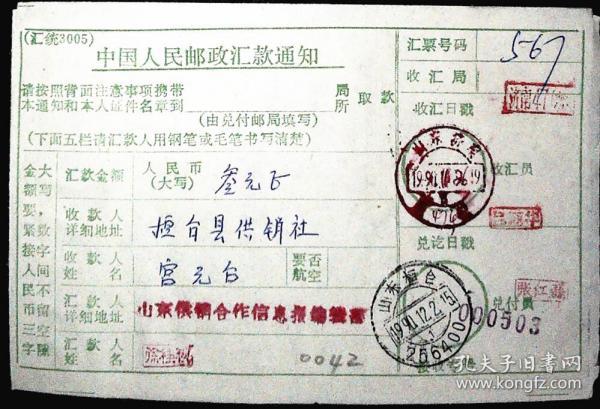 (汇统3005)
中国人民邮政汇款通知
请按照背面注意事项携带
本通知和本人证件名章到
局
所
取款
(由兑付邮局填写)
(下面五栏请汇款人用钢笔或毛笔书写清楚)
大写数字间不留空隙
金额要紧接人民三字
汇款金额
人民币
(大写)
叁元正
收款人
详细地址
桓台县供销社
收款人
姓名
宫元台
要否
航空
汇款人
详细地址
山东供销合作信息报编辑部
汇款人
姓名
0042
汇票号码
567
收汇局
收汇日戳
济南47
山东济南
收汇员
兑讫日戳
山东桓台
1991.12.2.15
256400
张红
兑付员
000503
接收号码
孔夫子旧书网
www.kongfz.com